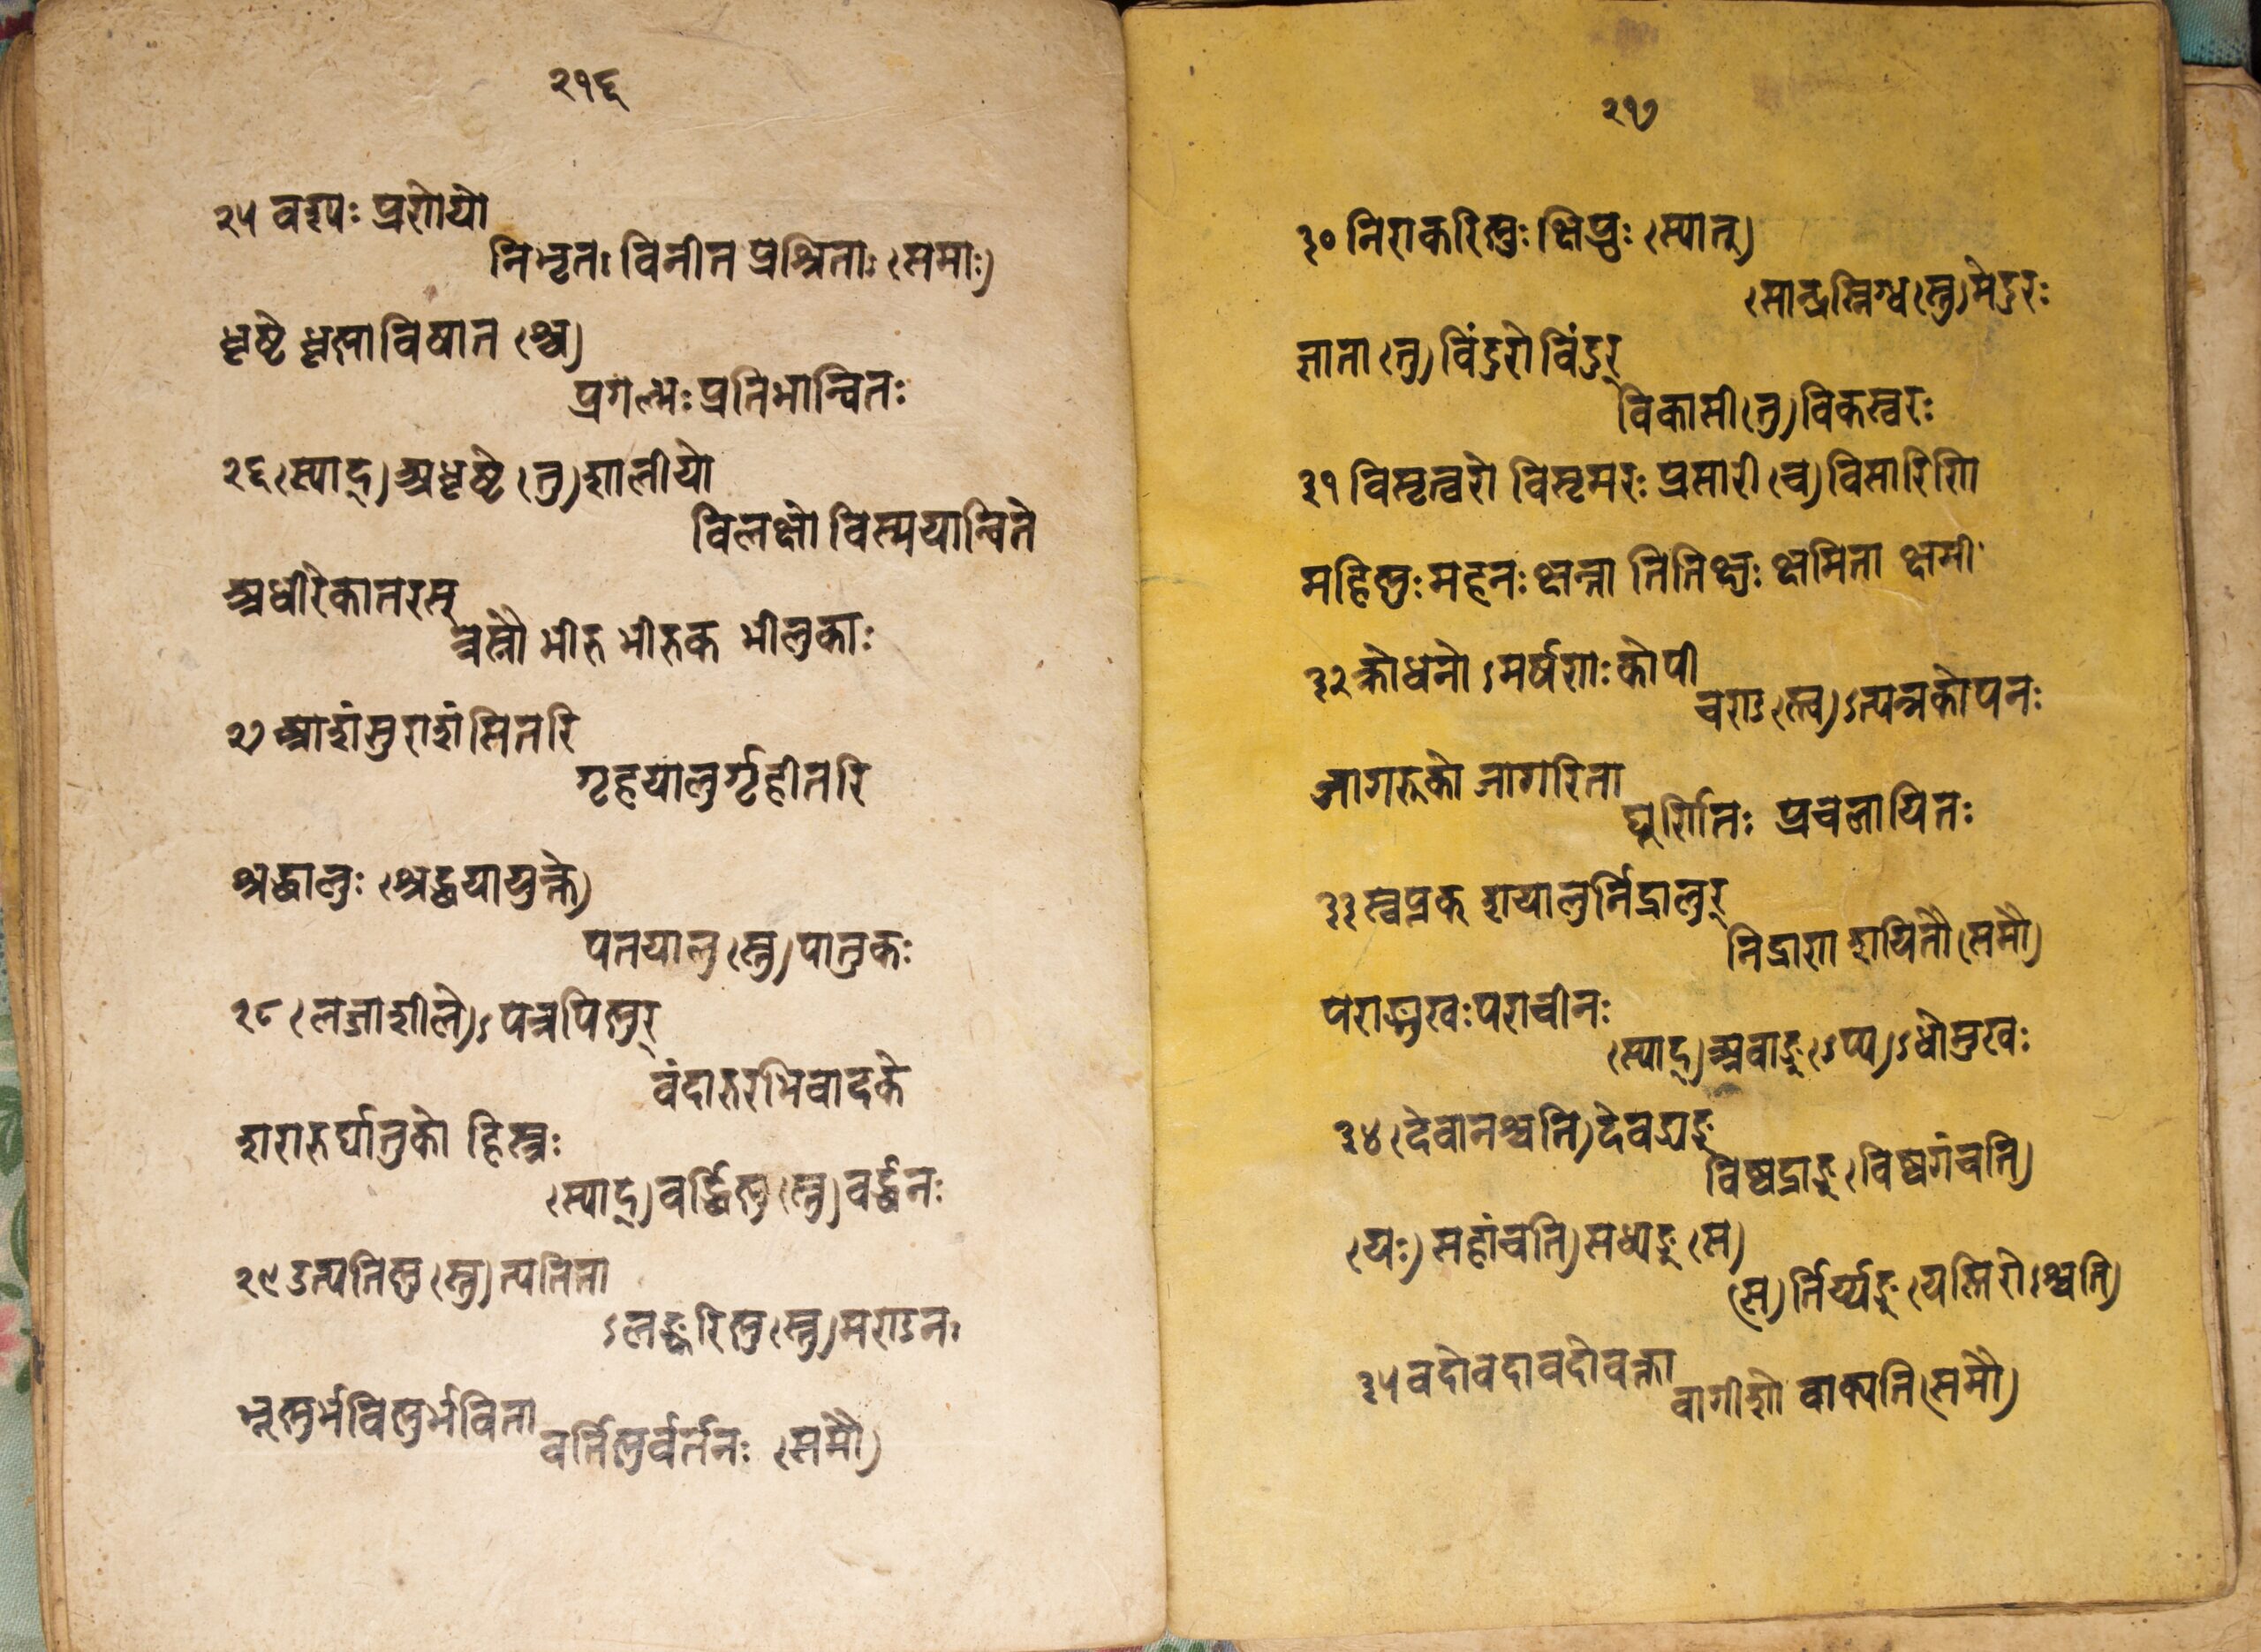 २१६
२५ वश्यः प्रणेयो
निभृतः विनीत प्रश्रिताः (समाः)
धृष्टे धृष्णावियात (श्च)
प्रगल्भः प्रतिभान्वितः
२६ (स्याद्) अधृष्टे (तु) शालीयो
विलक्षो विस्मयान्विते
अधीरे कातरस्
त्रस्नौ भीरु भीरुक भीलुकाः
२७ आशंसुराशंसितरि
गृहयालुर्गृहीतरि
श्रद्धालुः (श्रद्धयायुक्ते)
पतयालु (स्तु) पातुकः
२८ (लज्जाशीले)ऽपत्रपिष्णुर्
वंदारुरभिवादके
शरारुर्घातुको हिंस्त्रः
(स्याद्) वर्द्धिष्णु (स्तु) वर्द्धनः
२९ उत्पतिष्णु (स्तु) त्पतिता
ऽलङ्करिष्णु (स्तु) मण्डनः
भूष्णुर्भविष्णुर्भविता
वर्तिष्णुर्वर्तनः (समौ)
२१७
३० निराकरिष्णुः क्षिप्नुः (स्यात्)
(सान्द्रस्निग्ध (स्तु) मेदुरः
ज्ञाता (तु) विंदुरो विंदुर्
विकासी (तु) विकस्वरः
३१ विसृत्वरो विसृमरः प्रसारी (च) विसारिणि
सहिष्णुः सहनः क्षन्ता तितिक्षुः क्षमिता क्षमी
३२ क्रोधनोऽमर्षणः कोपी
चण्ड (स्त्व)ऽत्यन्तकोपनः
जागरूको जागरिता
घूर्णितः प्रचलायितः
३३ स्वप्नक् शयालुर्निद्रालुर्
निद्राण शयितौ (समौ)
पराङ्मुखः पराचीनः
(स्याद्) अवाङ् (ऽप्य)ऽधोमुखः
३४ (देवानञ्चति) देवद्र्यङ्
विष्वद्र्यङ् (विष्वगंचति)
(यः) सहांचति) सध्र्यङ् (स)
(स) र्तिर्य्यङ् (यस्तिरोऽञ्चति)
३५ वदो वदावदो वक्ता
वागीशो वाक्पति (समौ)